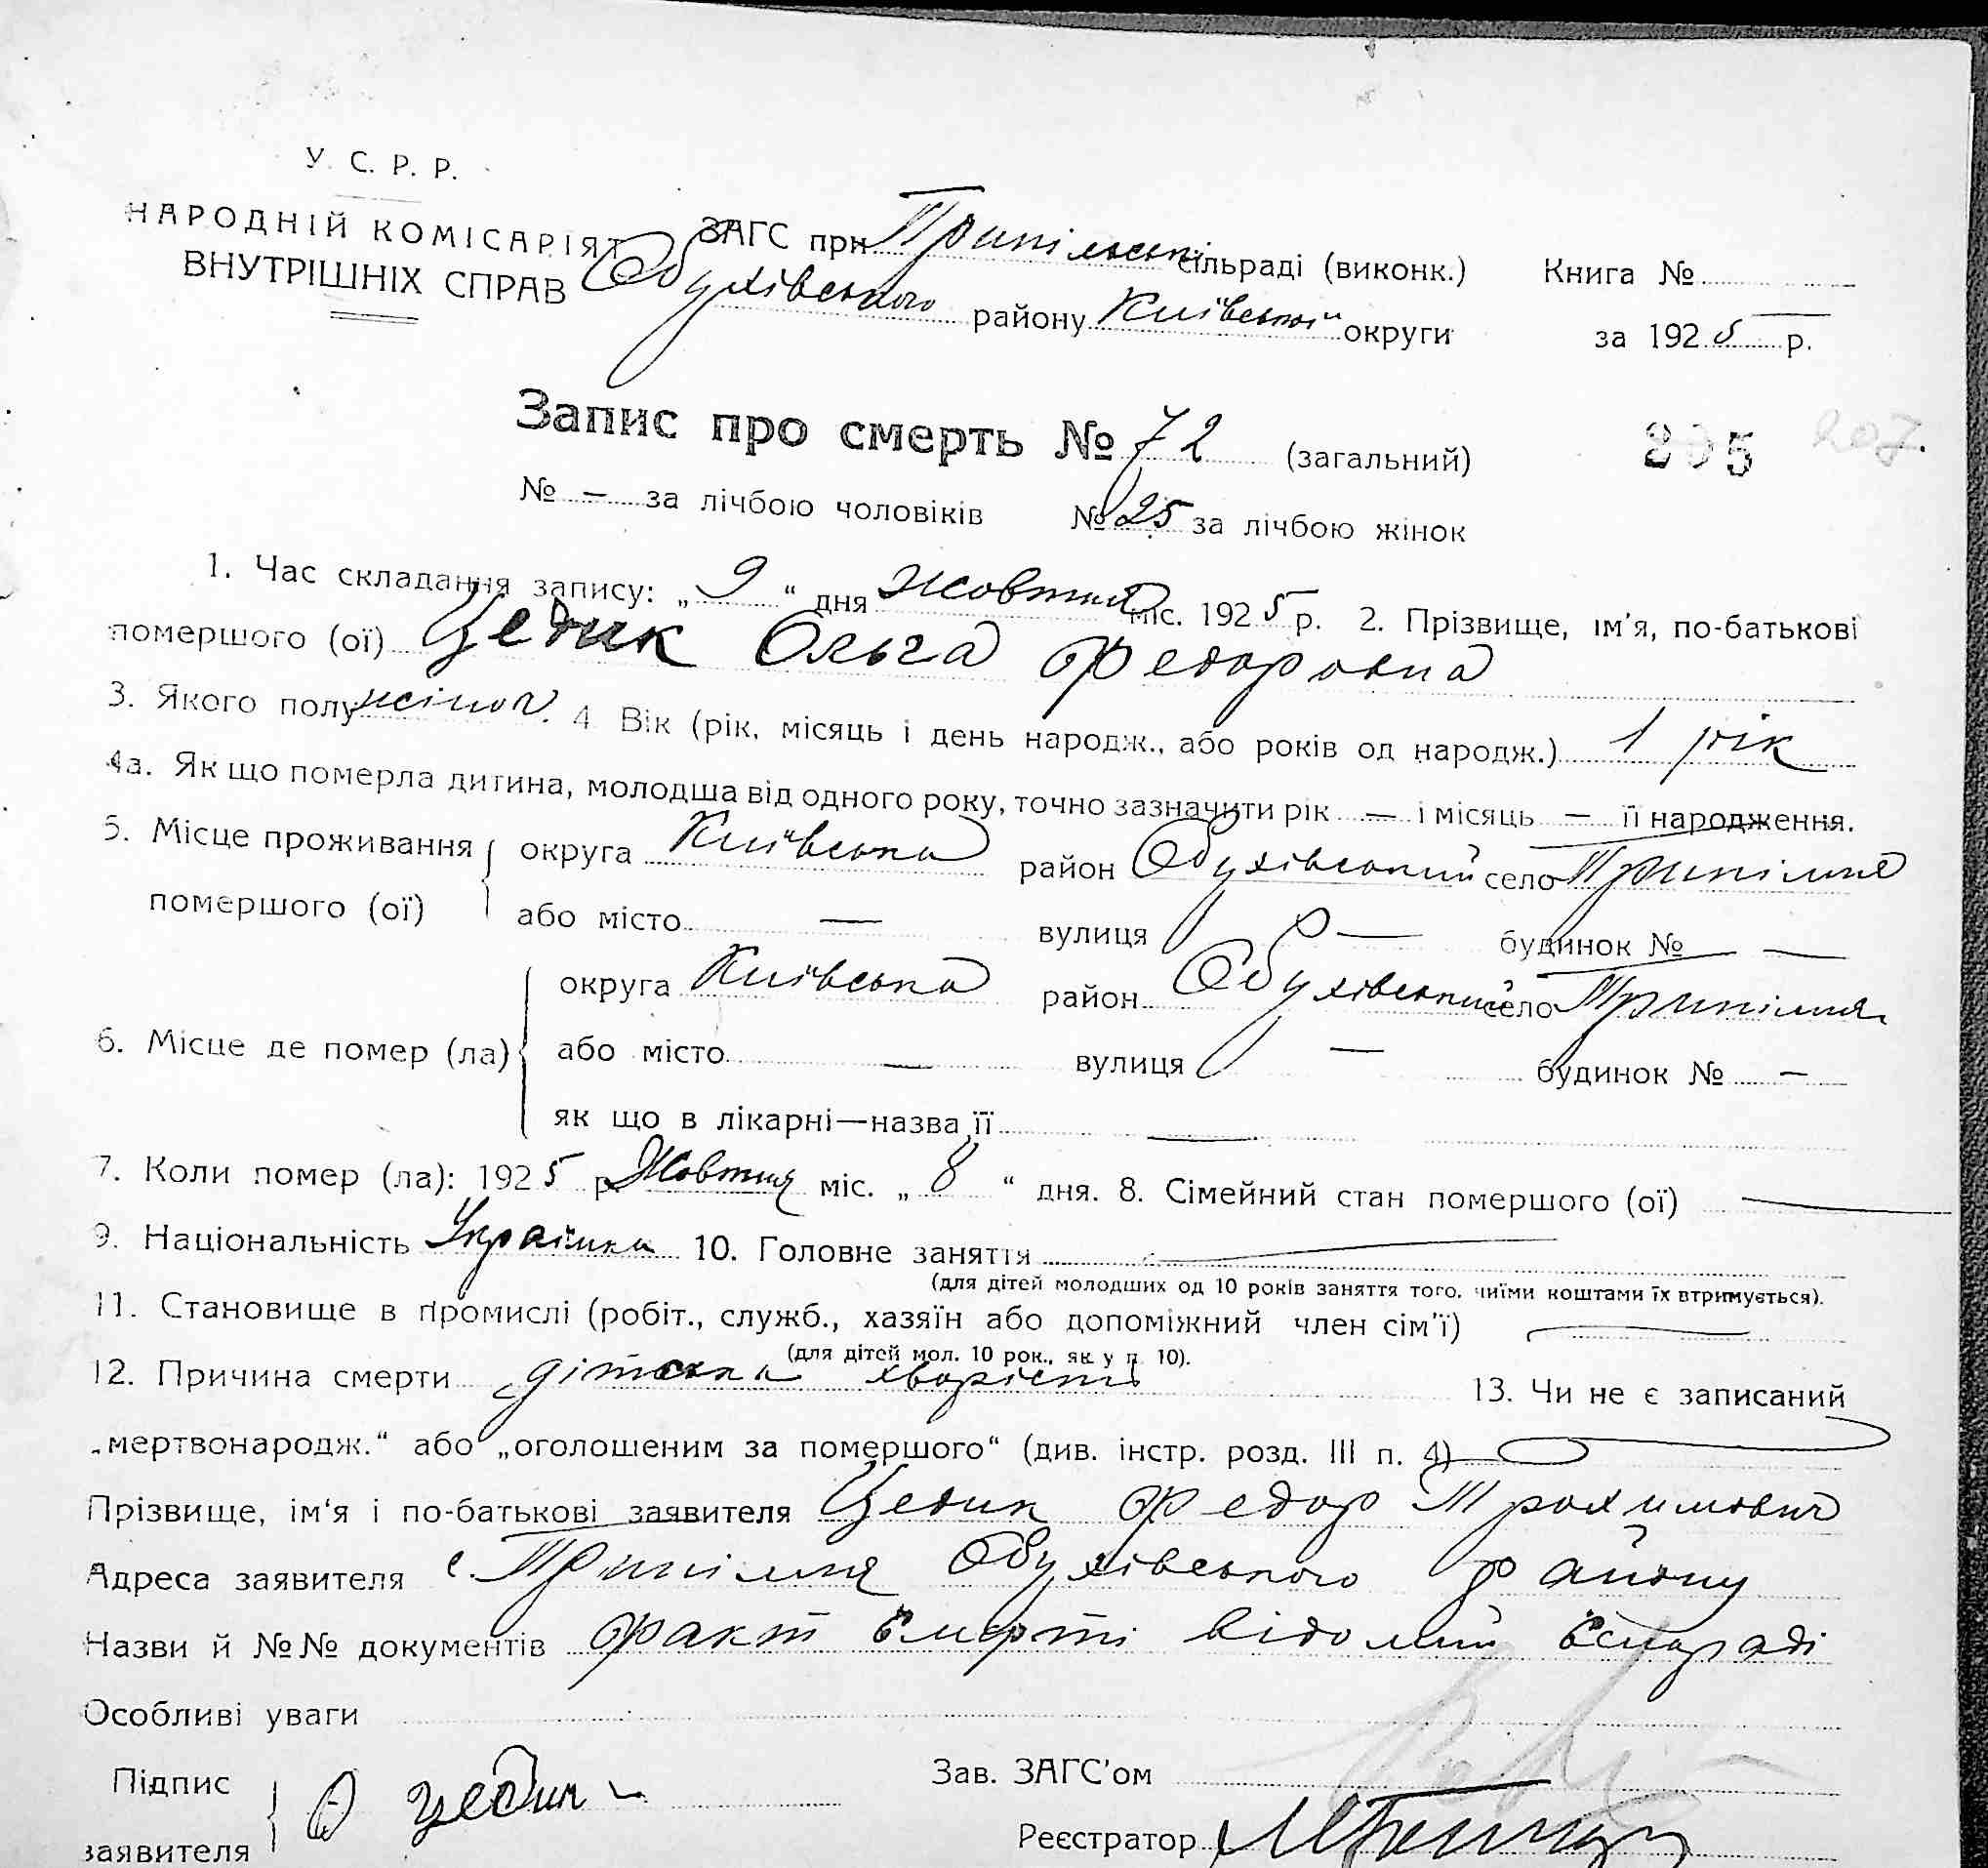 У. С. Р. Р.
НАРОДНІЙ КОМІСАРІЯТ
ВНУТРІШНІХ СПРАВ
ЗАГС при Трипільській сільраді (виконк.) Книга №
Обухівського району Київської округи за 1925 р.
Запис про смерть № 72 (загальний) 205 207.
№ — за лічбою чоловіків № 25 за лічбою жінок
1. Час складання запису: „9“ дня жовтня міс. 1925 р. 2. Прізвище, ім'я, по-батькові
помершого (ої) Цедик Ольга Федоровна
3. Якого полу жіноч. 4 Вік (рік, місяць і день народж., або років од народж.) 1 рік
4а. Як що померла дитина, молодша від одного року, точно зазначити рік — і місяць — її народження.
5. Місце проживання округа Київська район Обухівський село Трипілля
помершого (ої) або місто — вулиця — будинок № —
округа Київська район Обухівський село Трипілля
6. Місце де помер (ла) або місто — вулиця — будинок № —
як що в лікарні—назва її —
7. Коли помер (ла): 1925 р. Жовтня міс. „8“ дня. 8. Сімейний стан помершого (ої) —
9. Національність Українка 10. Головне заняття —
(для дітей молодших од 10 років заняття того, чиїми коштами їх втримується).
11. Становище в промислі (робіт., служб., хазяїн або допоміжний член сім'ї) —
(для дітей мол. 10 рок., як у п. 10).
12. Причина смерти дітська хворість 13. Чи не є записаний
„мертвонародж.“ або „оголошеним за помершого“ (див. інстр. розд. III п. 4) —
Прізвище, ім'я і по-батькові заявителя Цедик Федор Трохимович
Адреса заявителя с. Трипілля Обухівського району
Назви й №№ документів факт смерті відомий сільраді
Особливі уваги
Підпис
заявителя Ф Цедик
Зав. ЗАГС'ом
Реєстратор